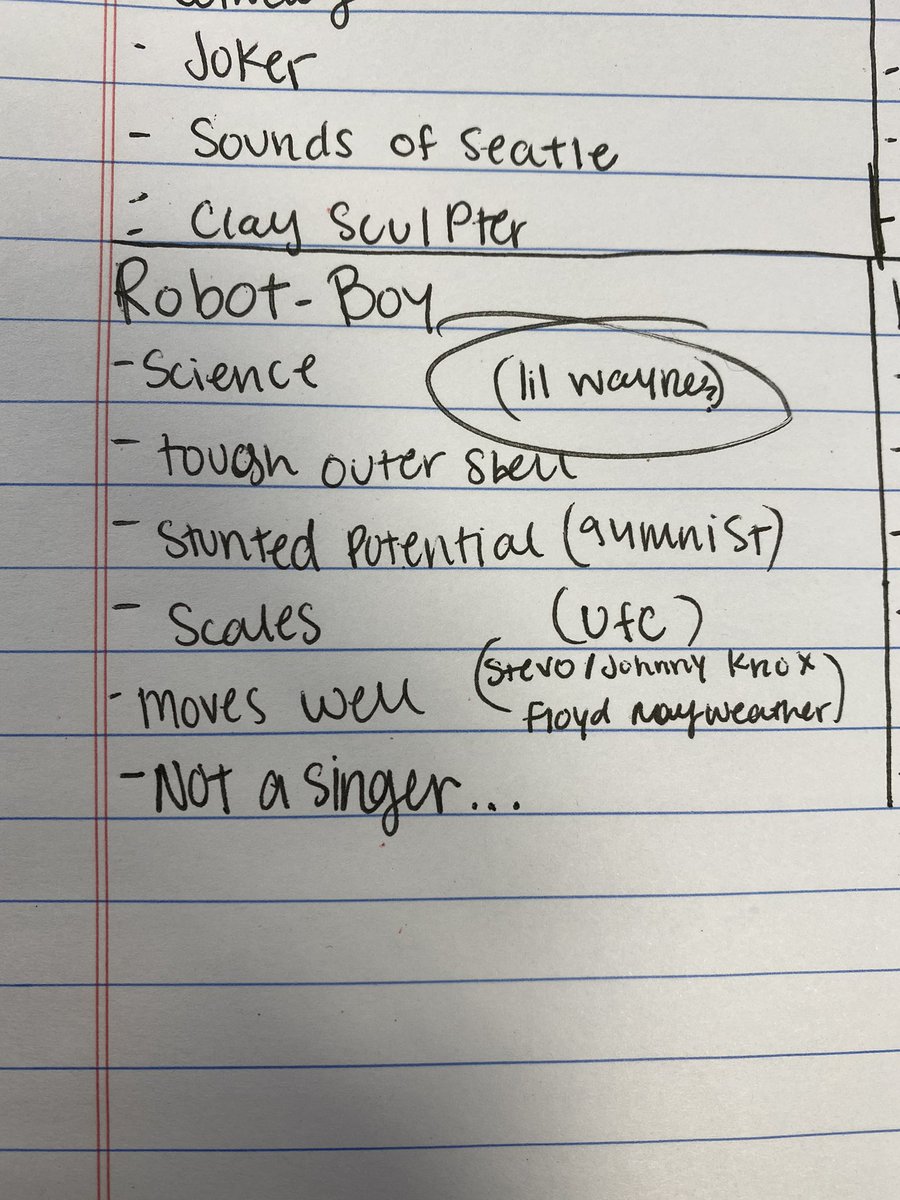 - Joker
- Sounds of Seatle
- Clay Sculpter
Robot-Boy
- Science (lil wayne?)
- tough outer shell
- Stunted Potential (gymnist)
- Scales (UFC)
(Stevo/Johnny Knox
- moves well Floyd Mayweather)
- Not a singer...